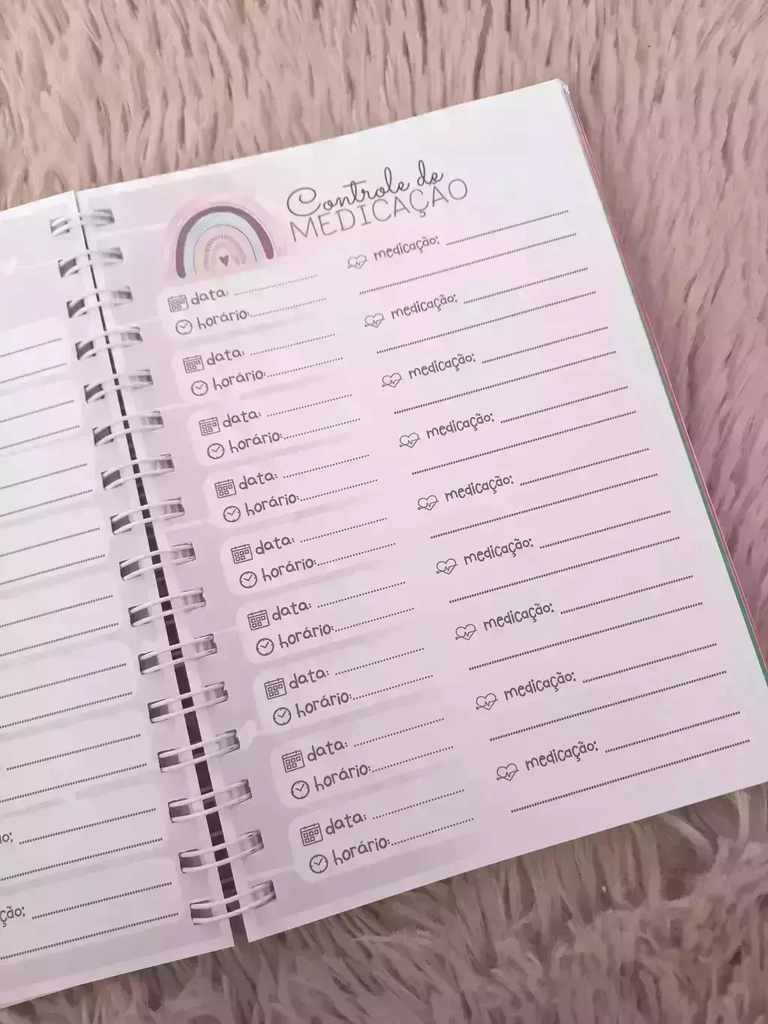 Controle de
MEDICAÇÃO
data:
horário:
medicação:
data:
horário:
medicação:
data:
horário:
medicação:
data:
horário:
medicação:
data:
horário:
medicação:
data:
horário:
medicação:
data:
horário:
medicação:
data:
horário:
medicação:
data:
horário:
medicação: